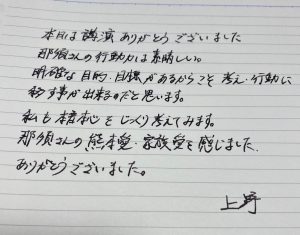 本日は講演ありがとうございました
那須さんの行動力は素晴しい。
明確な目的・目標があるからこそ考え・行動に
移す事が出来るのだと思います。
私も本心をじっくり考えてみます。
那須さんの熊本愛・家族愛を感じました。
ありがとうございました。
上野